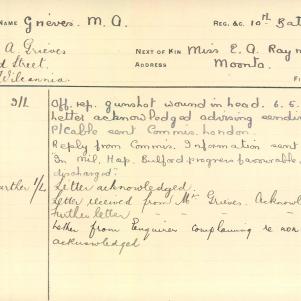 NAME Grieves. M. A. REG. &c. 10th Bat
A Grieves NEXT OF KIN Miss E. A. Raym
Street. ADDRESS Moonta.
Wilcannia. Fi
D/L Off. rep. gunshot wound in head. 6. 5.
Letter acknowledged advising sendin
P/Cable sent Commis. London.
Reply from Commis. Information sent
"In Mil. Hosp. Bulford progress favourable,
discharged;
further I/L Letter acknowledged.
Letter received from Mr Grieves. Acknowl
further letter - - -
Letter from Enquirer complaining re non
acknowledged